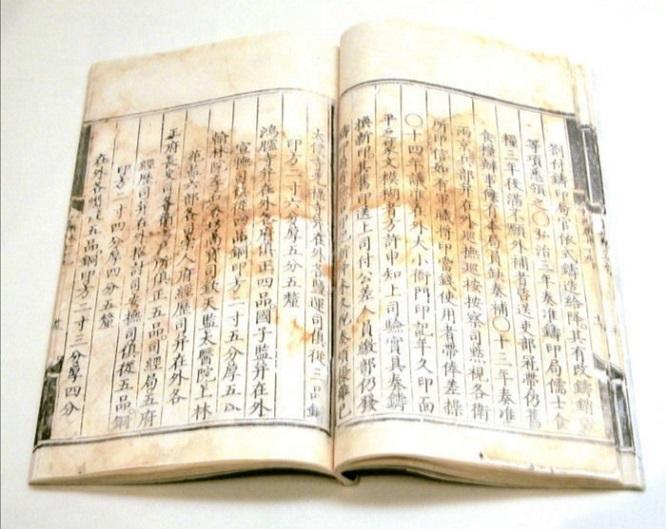 劄付鑄印局官依式鑄造給降其有改鑄銷
等項悉領之○弘治三年奏准鑄印局儒士食
糧三年後滿不願外補者咨送吏部冠帶仍舊
食糧辦事儻有本局員缺奏補○十三年奏准
兩京各部并在外巡撫巡按按察司點視各衛
所印信如有軍職將印當錢使用者帶俸差操
○十四年議准在外大小衙門印記年久印面
平乏篆文模糊者方許申知上司驗實具奏鑄
換新印其舊印送上司付公差人員繳部仍發
太僕寺光祿寺并在外鹽運司俱從三品銅
印方二寸六分厚五分五釐
鴻臚寺并在外各府俱正四品國子監并在外
宣撫司俱從四品銅印方二寸五分厚五分
翰林院左右春坊尚寶司欽天監太醫院上林
苑監六部各司宗人府經歷司并在外各
王府長史司各衛千戶所俱正五品司經局五府
經歷司并在外招討司安撫司俱從五品銅
印方二寸四分厚四分五釐
在外各州從五品銅印方二寸三分厚四分